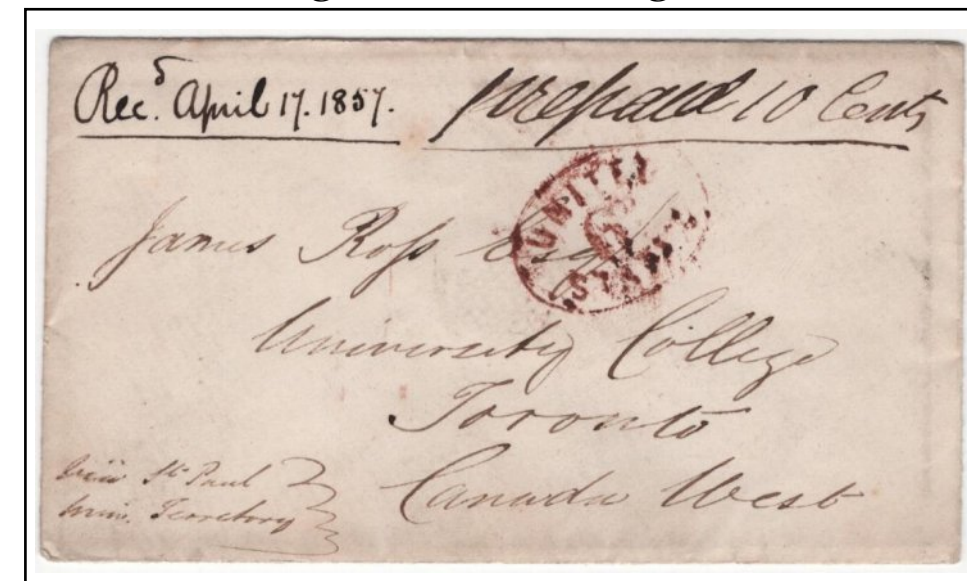 Recd. April 17. 1857.
prepaid 10 Cents
UNITED
6
STATES
James Ross Esqr
University College
Toronto
Canada West
St Paul
Territory